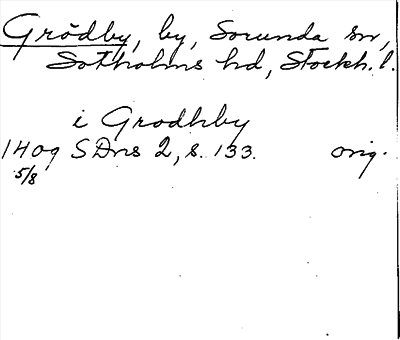 Grödby, by, Sorunda sn,
Sotholms hd, Stockh. l.
i Grodhby
1409 SDns 2, s. 133. orig.
5/8